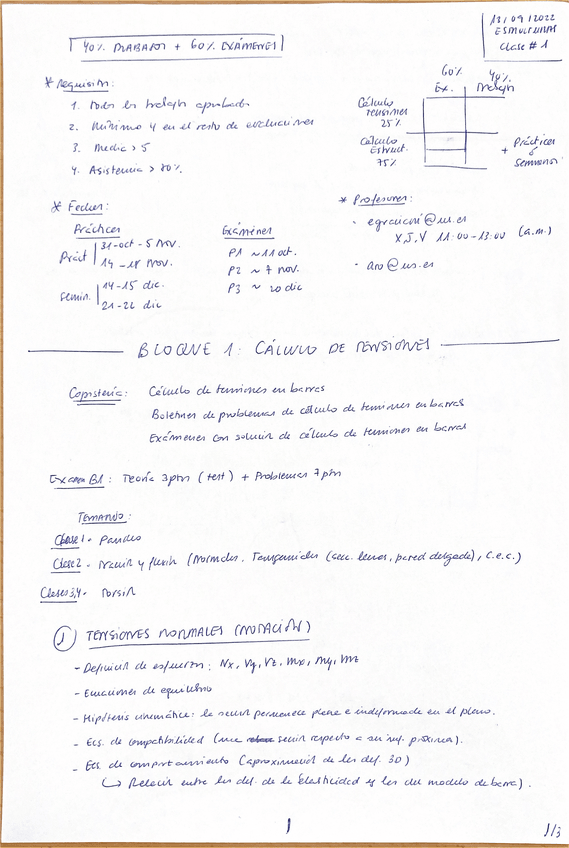 13/09/2022
ESTRUCTURAS
Clase #1
40% TRABAJOS + 60% EXÁMENES
* Requisitos:
1. Todos los trabajos aprobados
2. Mínimo 4 en el resto de evaluaciones
3. Media > 5
4. Asistencia > 80%.
60% Ex.
40% Trabajo
Cálculo tensiones 25%
Cálculo Estruct. 75%
+ Prácticas y Seminarios
* Fechas:
Prácticas
Práct
31-oct - 5 nov.
14 - 18 nov.
Semin.
14-15 dic.
21-22 dic
Exámenes
P1 ~ 11 oct.
P2 ~ 7 nov.
P3 ~ 20 dic
* Profesores:
X, J, V 11:00-13:00 (a.m.)
· aro@us.es
BLOQUE 1: CÁLCULO DE TENSIONES
Copistería: Cálculo de tensiones en barras
Boletines de problemas de cálculo de tensiones en barras
Exámenes con solución de cálculo de tensiones en barras
Examen B1: Teoría 3ptos (test) + Problemas 7ptos
TEMARIO:
Clase 1 - Pandeo
Clase 2 - Tracción y flexión (Normales. Tangenciales (secc. llenas, pared delgada), c.e.c.)
Clases 3,4 - Torsión
1 TENSIONES NORMALES (NOTACIÓN)
- Definición de esfuerzos: Nx, Vy, Vz, Mx, My, Mz
- Ecuaciones de equilibrio
- Hipótesis cinemática: la sección permanece plana e indeformada en el plano.
- Ecs. de compatibilidad (una sección respecto a su inf. próxima).
- Ecs. de comportamiento (aproximación de las def. 3D)
↳ Relación entre las def. de la Elasticidad y las del modelo de barra).
1
1/3